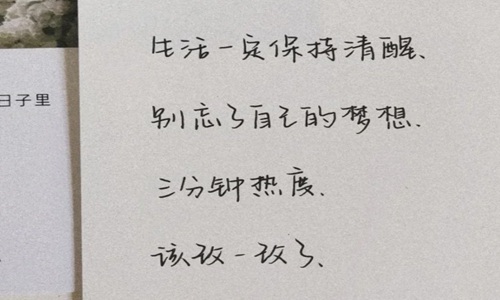 日子里
生活一定保持清醒、
别忘了自己的梦想.
三分钟热度、
该改一改了、